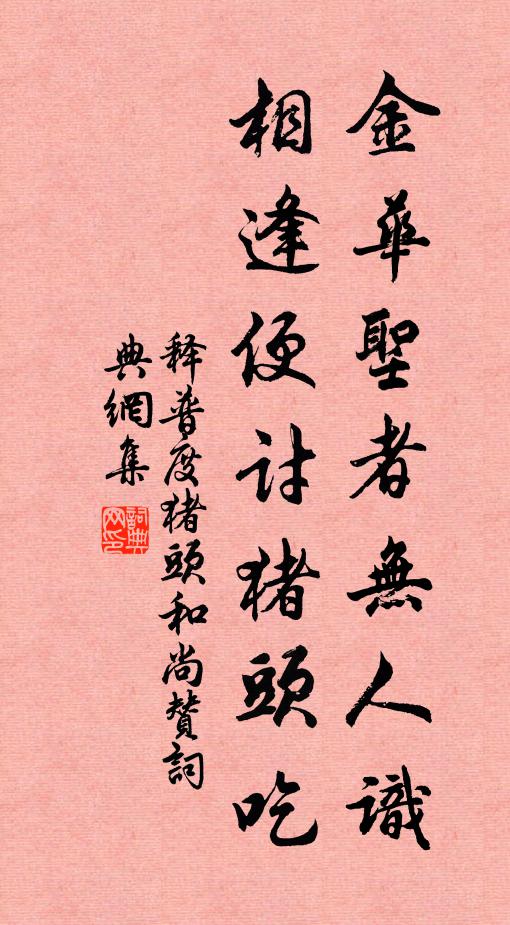 金華聖者無人識
相逢便討猪頭吃
释普度猪頭和尚赞詞
典網集
詞典网印